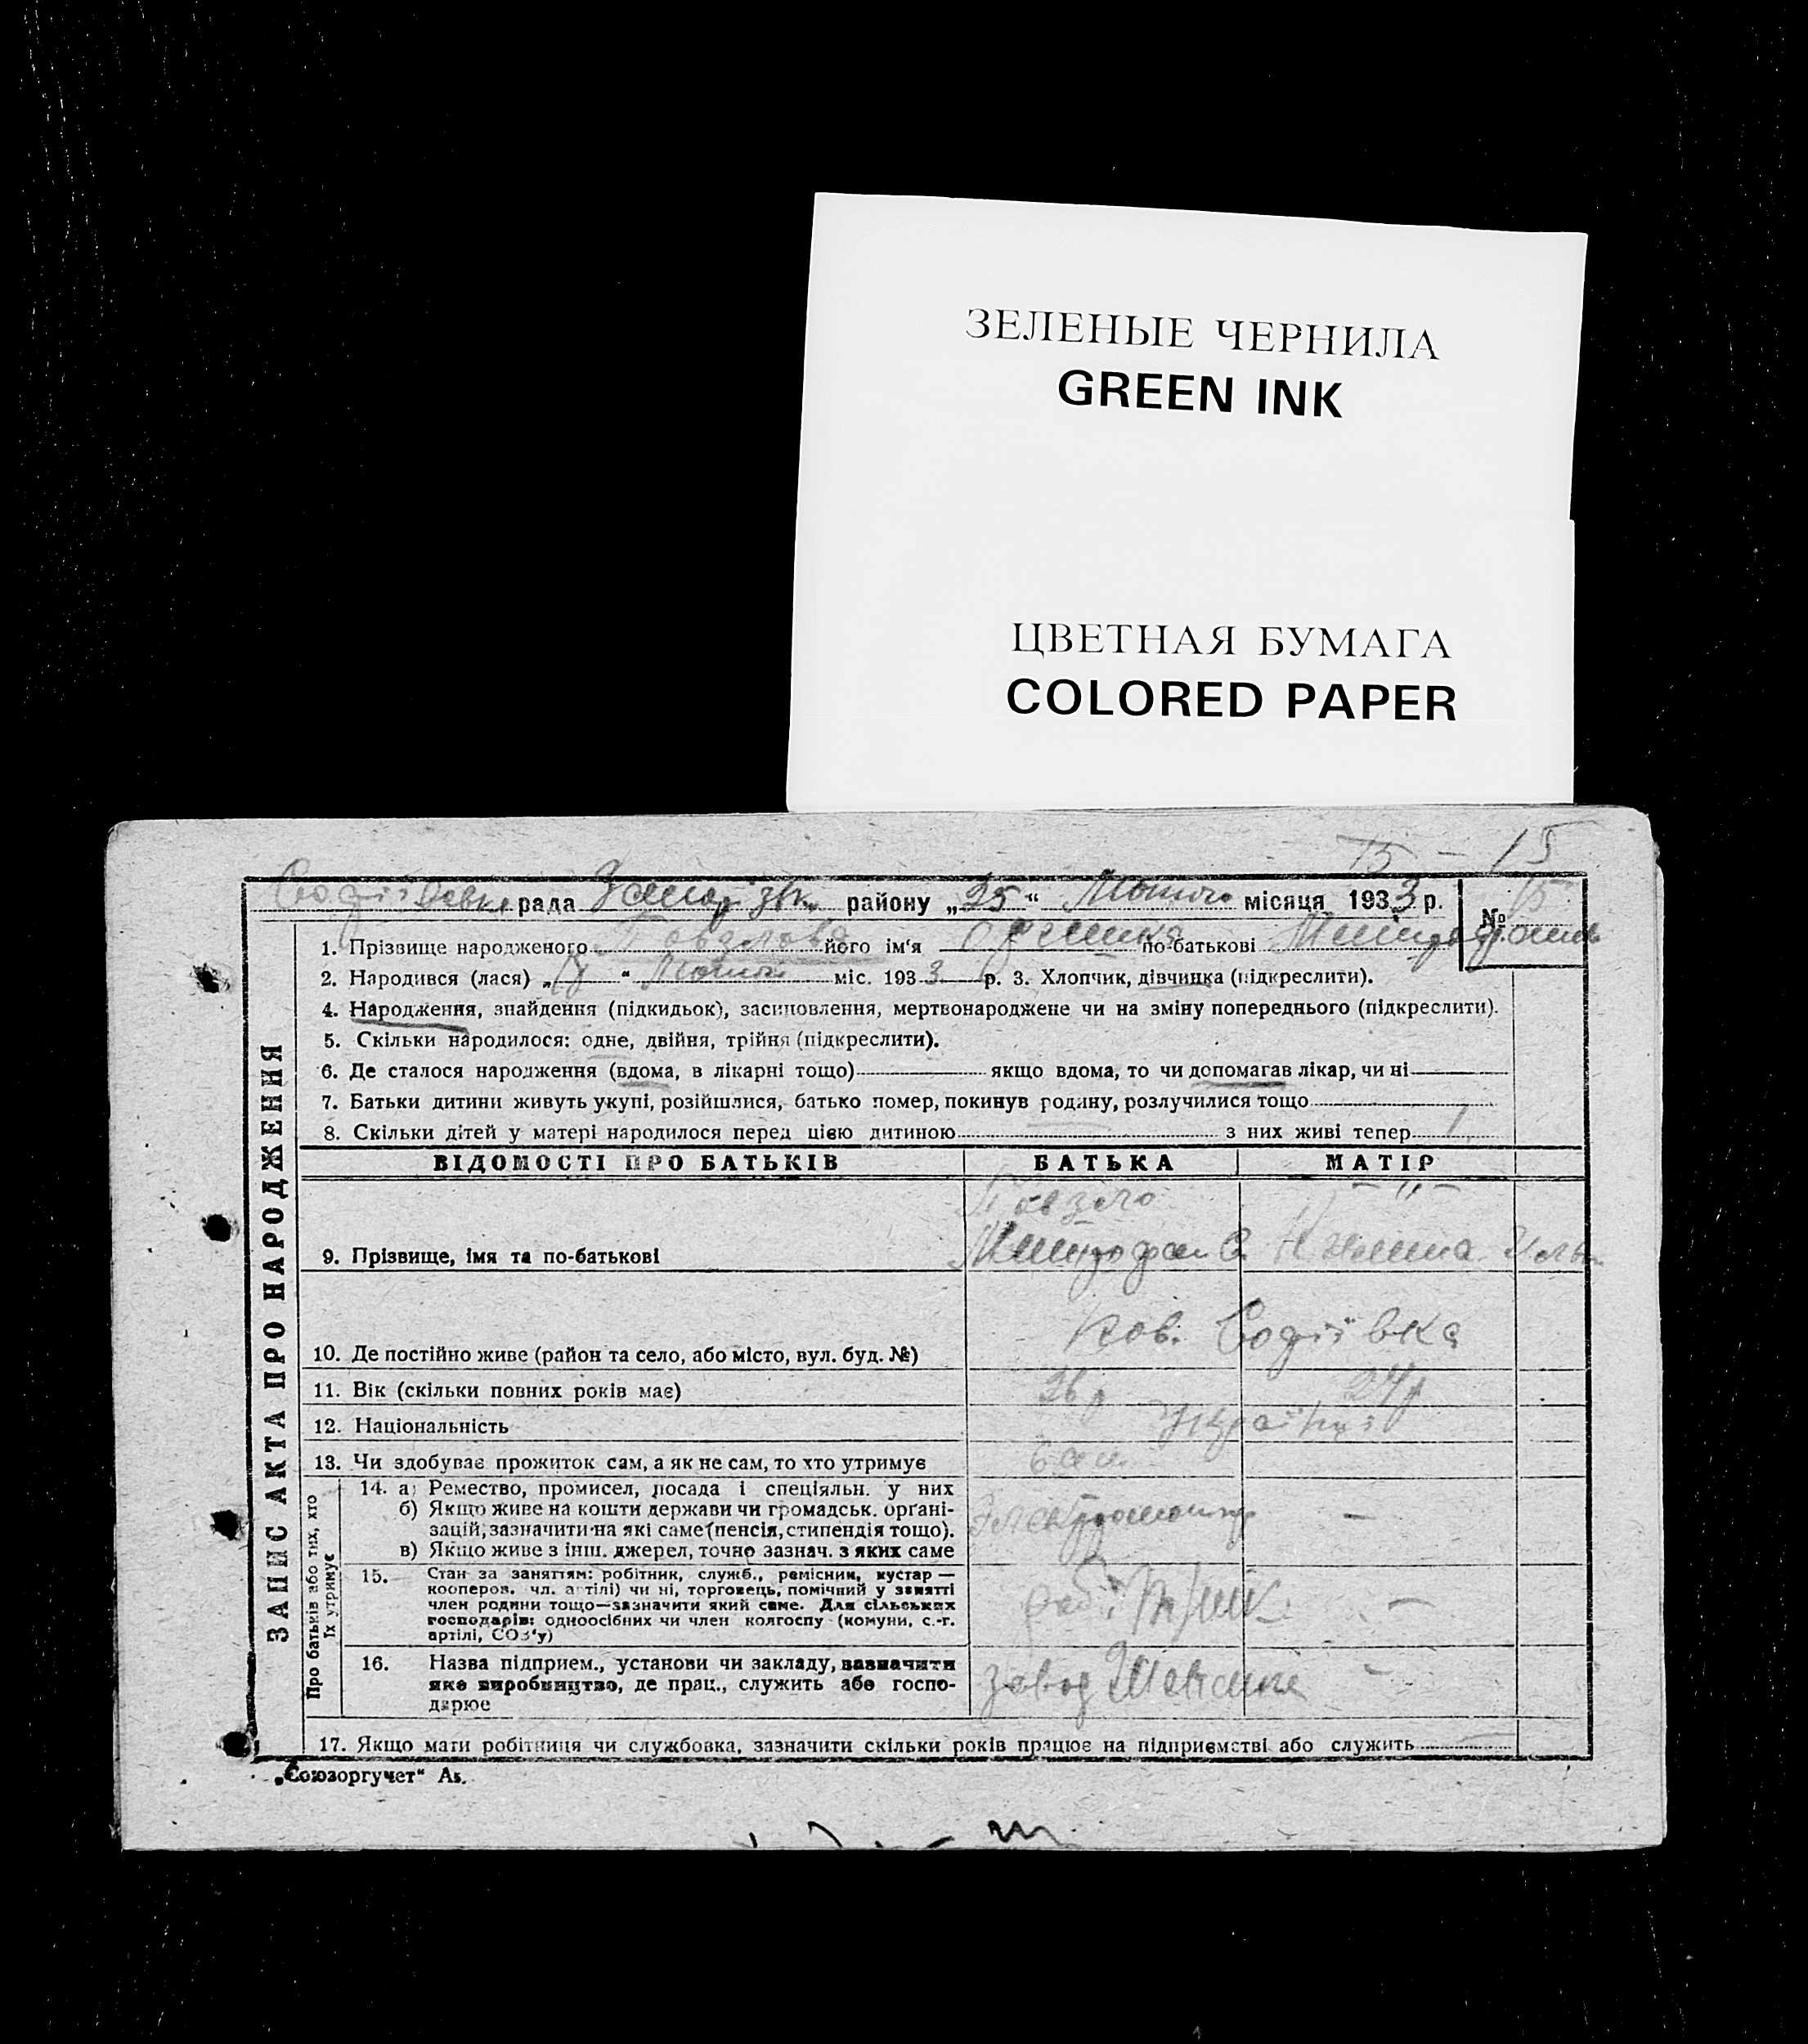 ЗЕЛЕНЫЕ ЧЕРНИЛА
GREEN INK
ЦВЕТНАЯ БУМАГА
COLORED PAPER
15 – 15
рада району „25“ Лютого місяця 1933 р. № 15
ЗАПИС АКТА ПРО НАРОДЖЕННЯ
1. Прізвище народженого його ім‘я по-батькові
2. Народився (лася) „ “ міс. 1933 р. 3. Хлопчик, дівчинка (підкреслити).
4. Народження, знайдення (підкидьок), засиновлення, мертвонароджене чи на зміну попереднього (підкреслити).
5. Скільки народилося: одне, двійня, трійня (підкреслити).
6. Де сталося народження (вдома, в лікарні тощо) якщо вдома, то чи допомагав лікар, чи ні
7. Батьки дитини живуть укупі, розійшлися, батько помер, покинув родину, розлучилися тощо
8. Скільки дітей у матері народилося перед цією дитиною з них живі тепер 1
ВІДОМОСТІ ПРО БАТЬКІВ БАТЬКА МАТІР
– „ –
9. Прізвище, імя та по-батькові
10. Де постійно живе (район та село, або місто, вул. буд. №) Софіївка
11. Вік (скільки повних років має) 26 р 24 р
12. Національність
13. Чи здобуває прожиток сам, а як не сам, то хто утримує сам
Про батьків або тих, хто їх утримує
14. а) Ремество, промисел, посада і спеціяльн. у них
б) Якщо живе на кошти держави чи громадськ. органі-
зацій, зазначити на які саме (пенсія, стипендія тощо). –
в) Якщо живе з інш. джерел, точно зазнач. з яких саме
15. Стан за заняттям: робітник, служб., ремісник, кустар —
кооперов. чл. артілі) чи ні, торговець, помічний у занятті
член родини тощо—зазначити який саме. Для сільських –
господарів: одноосібних чи член колгоспу (комуни, с.-г.
артілі, СОЗ‘у)
16. Назва підприєм., установи чи закладу, зазначити
яке виробництво, де прац., служить або госпо- завод –
дарює
17. Якщо мати робітниця чи службовка, зазначити скільки років працює на підприємстві або служить
„Союзоргучет“ Ак.